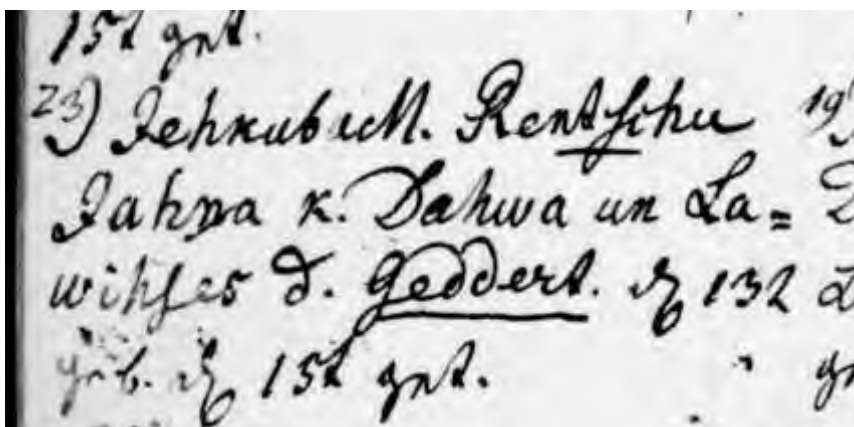 15t get.
23) Jehkubu M. Rentschu 19)
Jahna k. Dahwa un La=
wihses d. Geddert. d. 132
geb. d. 15t get.